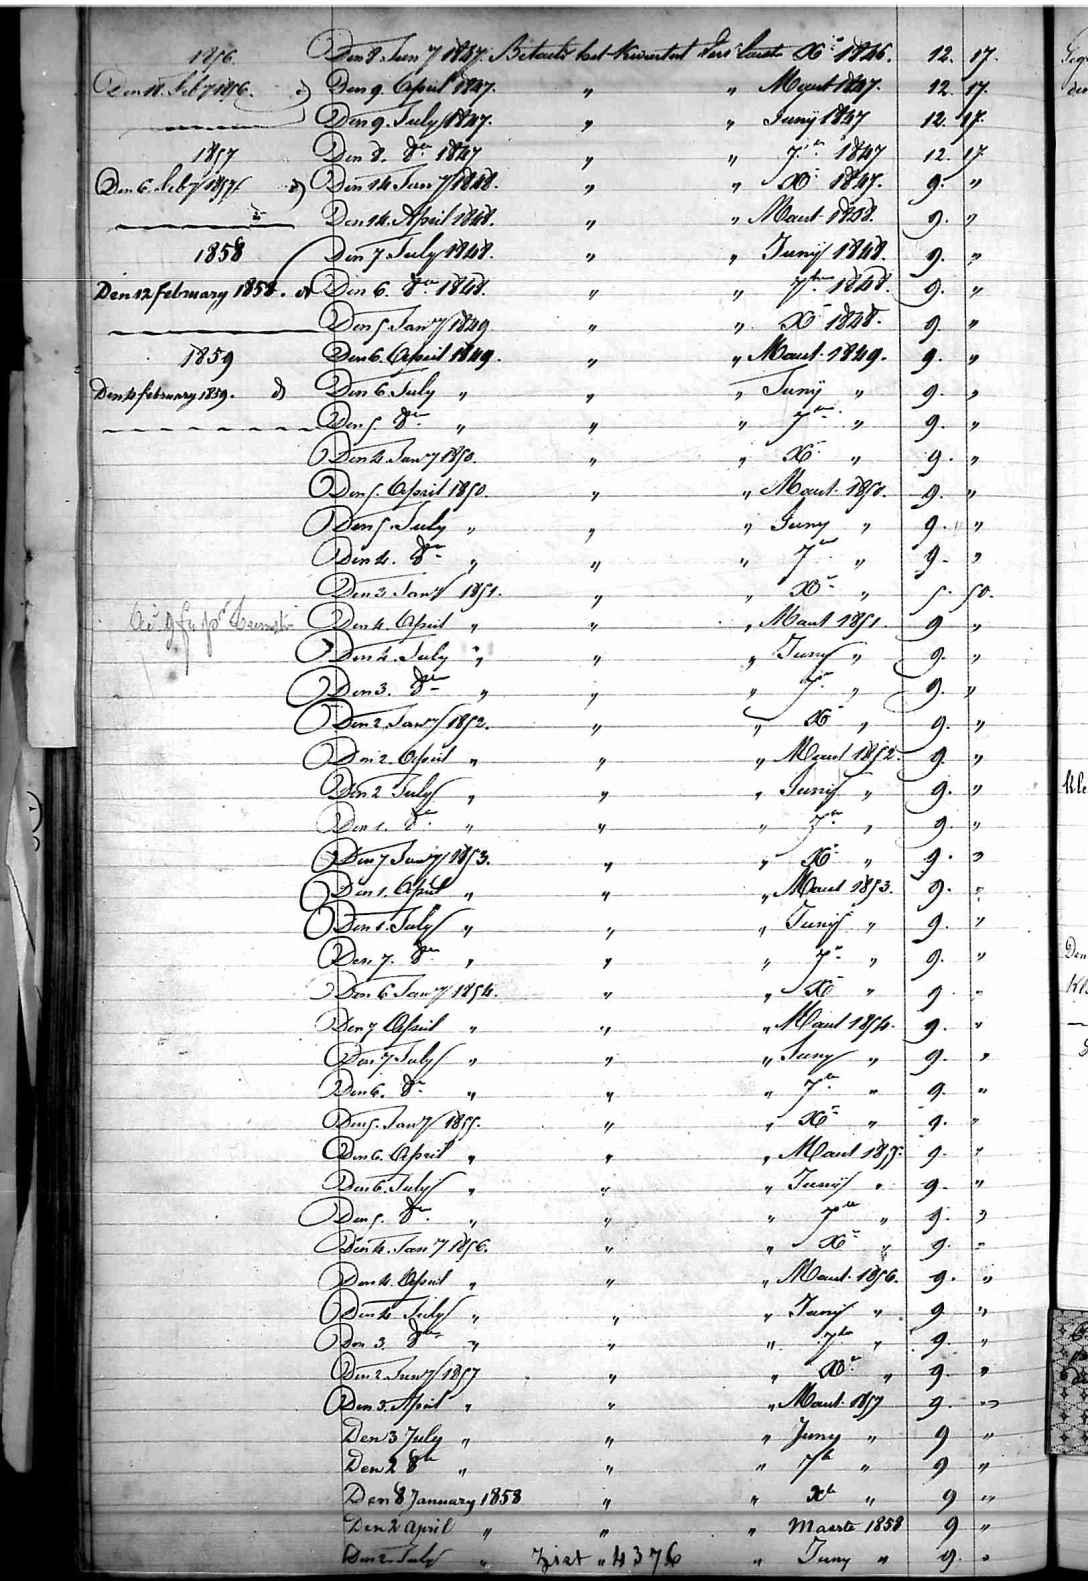 1856.
Den 11. Feb 7 1856.
1857
Den 6. Feb 7 1857.
1858
Den 12 february 1858.
1859
Den 4 february 1859.
Den 8. Jan 7 1847. Betaald het Kwartaal Xr 1846. 12. 17.
Den 9. April 1847. " " Maart 1847. 12. 17.
Den 9. July 1847. " " Junij 1847 12. 17.
Den 8. 8er 1847 " " 7er 1847 12. 17
Den 14 Jan 7 1848. " " Xr 1847. 9. "
Den 14. April 1848. " " Maart 1848. 9. "
Den 7 July 1848. " " Junij 1848. 9. "
Den 6. 8er 1848. " " 7ber 1848. 9. "
Den 5 Jan 7 1849 " " Xr 1848. 9. "
Den 6. April 1849. " " Maart 1849. 9. "
Den 6 July " " " Junij " 9. "
Den 5 8er " " " 7er " 9. "
Den 4 Jan 7 1850. " " Xr " 9. "
Den 5. April 1850. " " Maart 1850. 9. "
Den 5 July " " " Juny " 9. "
Den 4. 8er " " " 7er " 9. "
Den 3 Jan 7 1851. " " Xr " 5. 50.
Den 4. April " " " Maart 1851. 9 "
Den 4. July " " " Juny " 9. "
Den 3. 8er " " " 7r " 9. "
Den 2 Jan 7 1852. " " Xr " 9. "
Den 2. April " " " Maart 1852. 9. "
Den 2 July " " " Junij " 9. "
Den 1. 8er " " " 7er " 9. "
Den 7 Jan 7 1853. " " Xr " 9. "
Den 1. April " " " Maart 1853. 9. "
Den 1. July " " " Junij " 9. "
Den 7. 8er " " " 7r " 9. "
Den 6 Jan 7 1854. " " Xr " 9. "
Den 7 April " " " Maart 1854. 9. "
Den 7. July " " " Juny " 9. "
Den 6. 8r " " " 7er " 9. "
Den 5. Jan 7 1855. " " Xr " 9. "
Den 6. April " " " Maart 1855. 9. "
Den 6. July " " " Junij " 9. "
Den 5. 8er " " " 7ber " 9. "
Den 4. Jan 7 1856. " " Xr " 9. "
Den 4. April " " " Maart 1856. 9. "
Den 4 July " " " Junij " 9. "
Den 3. 8er " " " 7ber " 9. "
Den 2 Jan 7 1857 " " Xr " 9. "
Den 3. April " " " Maart 1857 9. "
Den 3 July " " " Juny " 9 "
Den 2 8br " " " 7b " 9 "
Den 8 January 1858 " " Xb " 9 "
Den 2 April " " " Maarte 1858 9 "
Den 2. July " Ziet " 4376 " Juny " 9. "